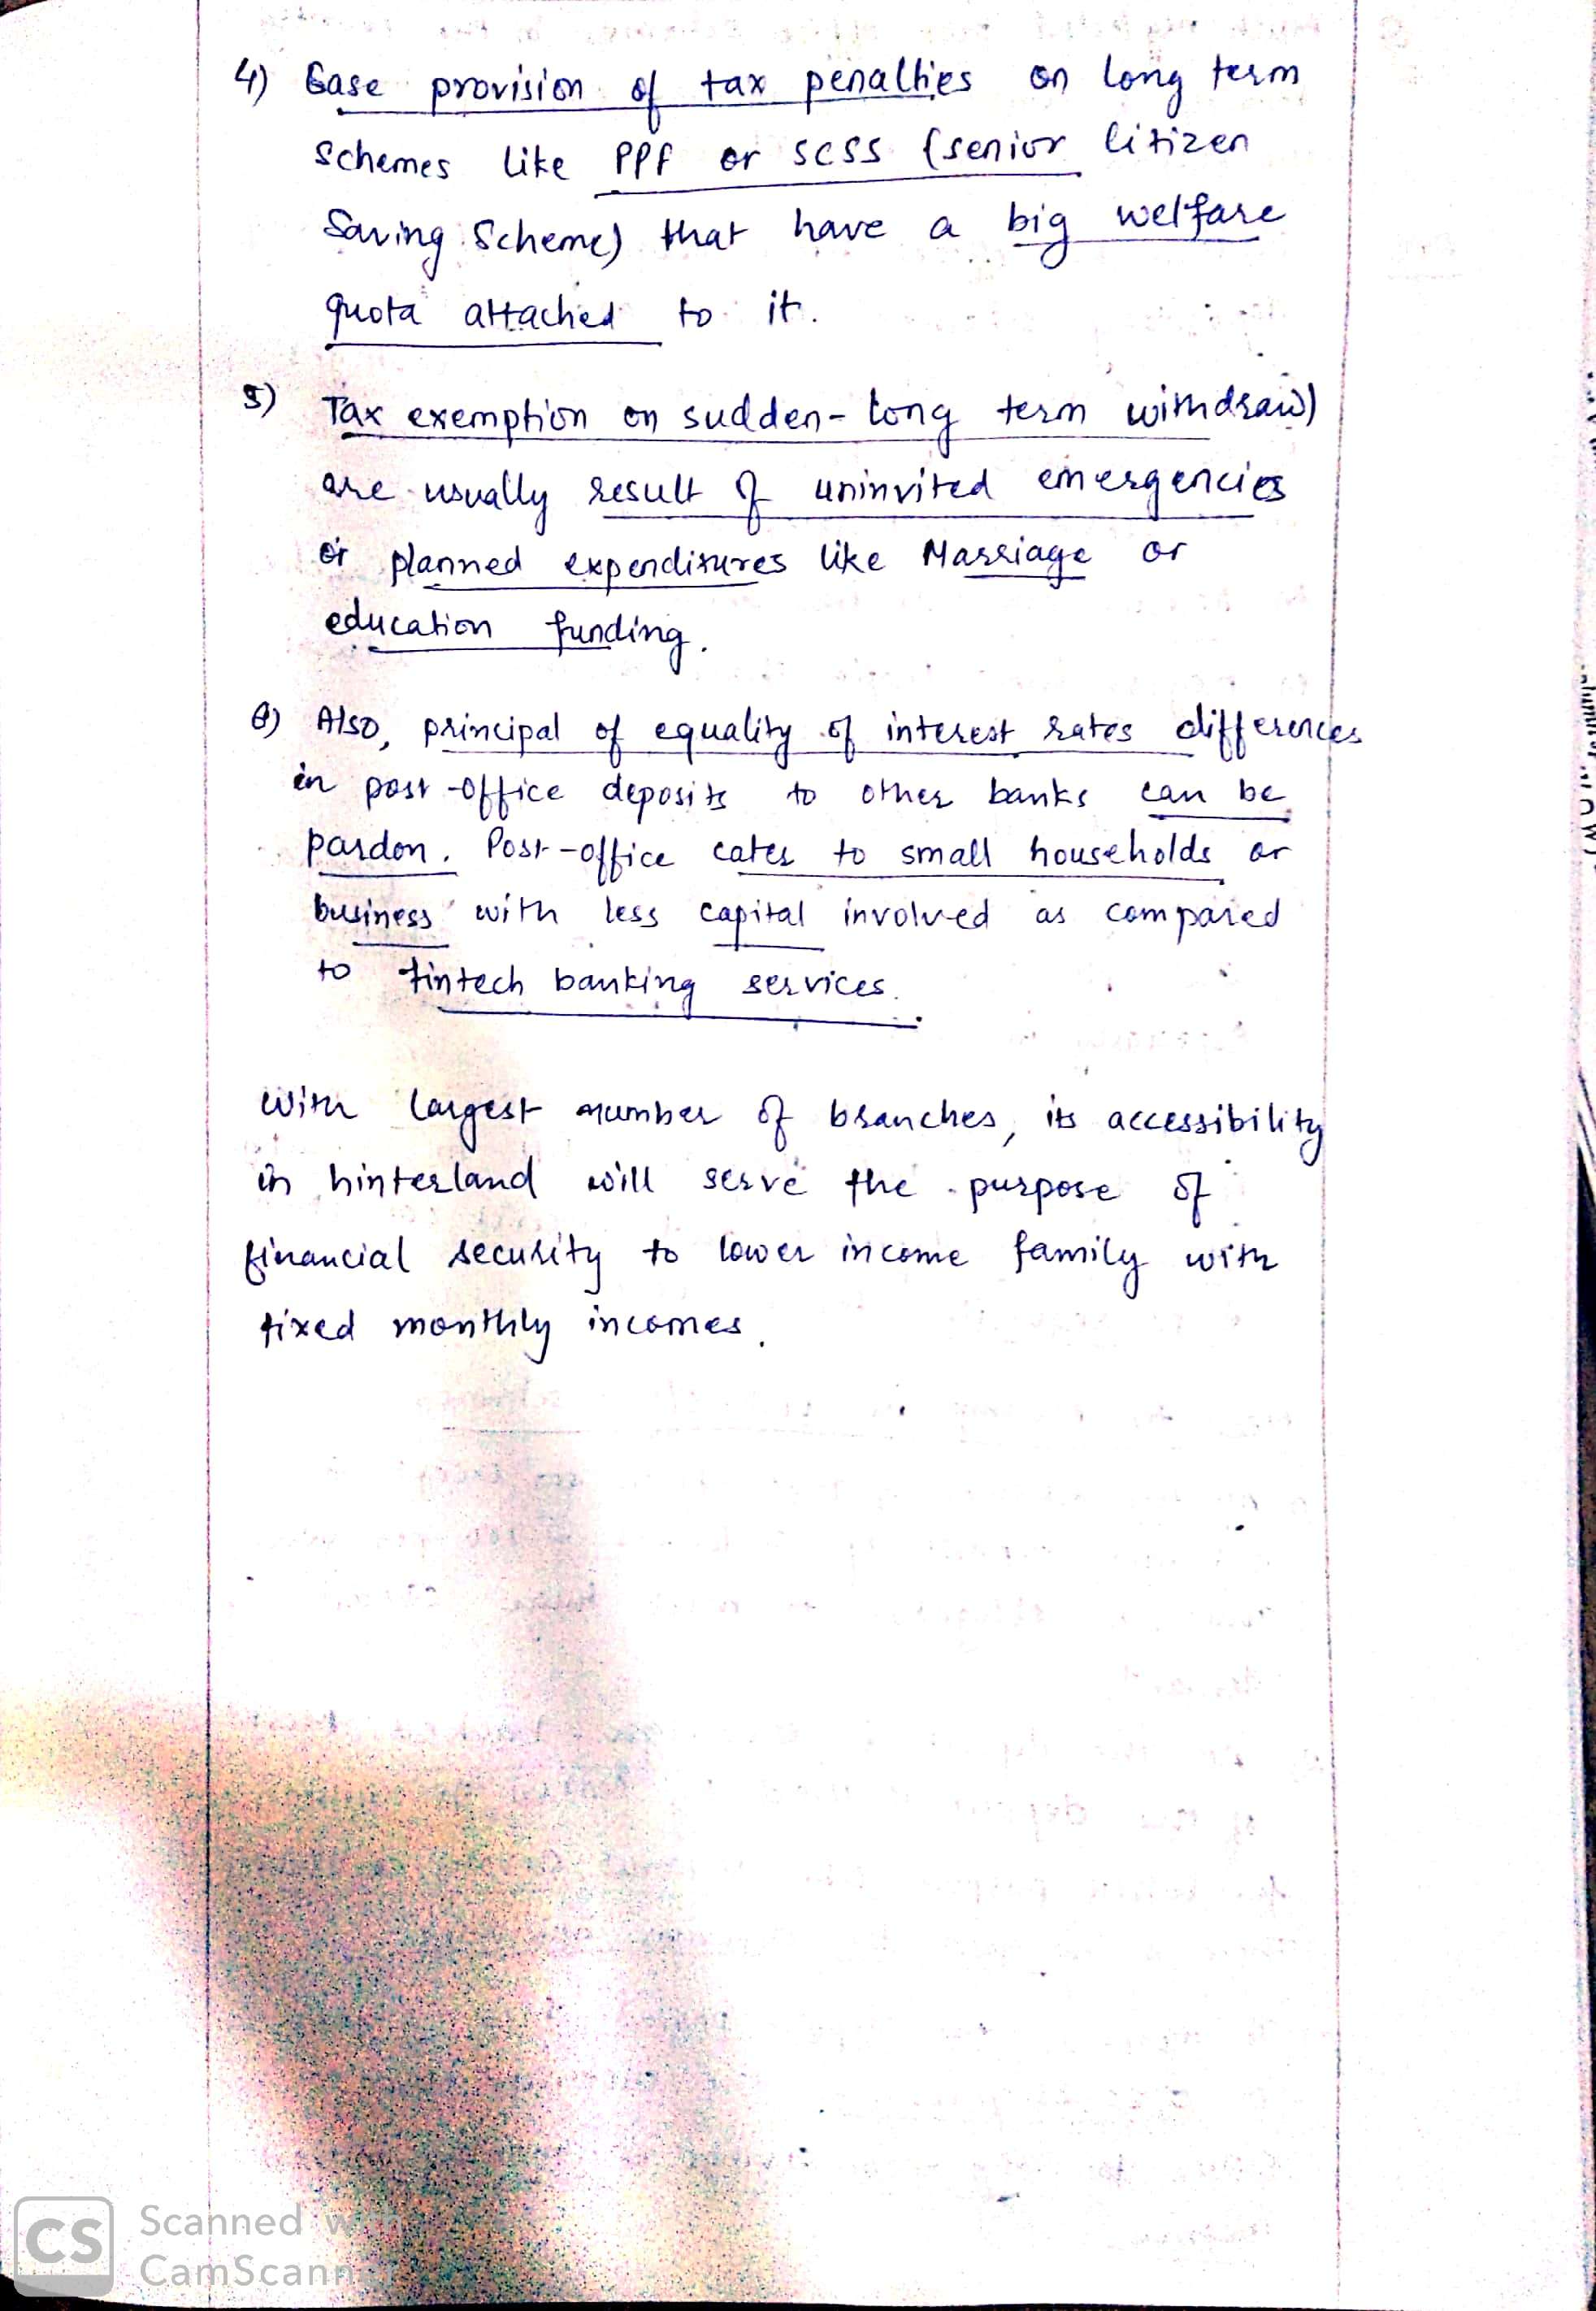 4) Ease provision of tax penalties on long term
schemes like PPF or SCSS (senior Citizen
Saving Scheme) that have a big welfare
quota attached to it.
5) Tax exemption on sudden-long term withdrawl
are usually result of uninvited emergencies
or planned expenditures like Marriage or
education funding.
6) Also, principal of equality of interest rates differences
in post-office deposits to other banks can be
pardon. Post-office cater to small households or
business with less capital involved as compared
to fintech banking services.
With largest number of branches, its accessibility
in hinterland will serve the purpose of
financial security to lower income family with
fixed monthly incomes.
CS Scanned with
CamScann